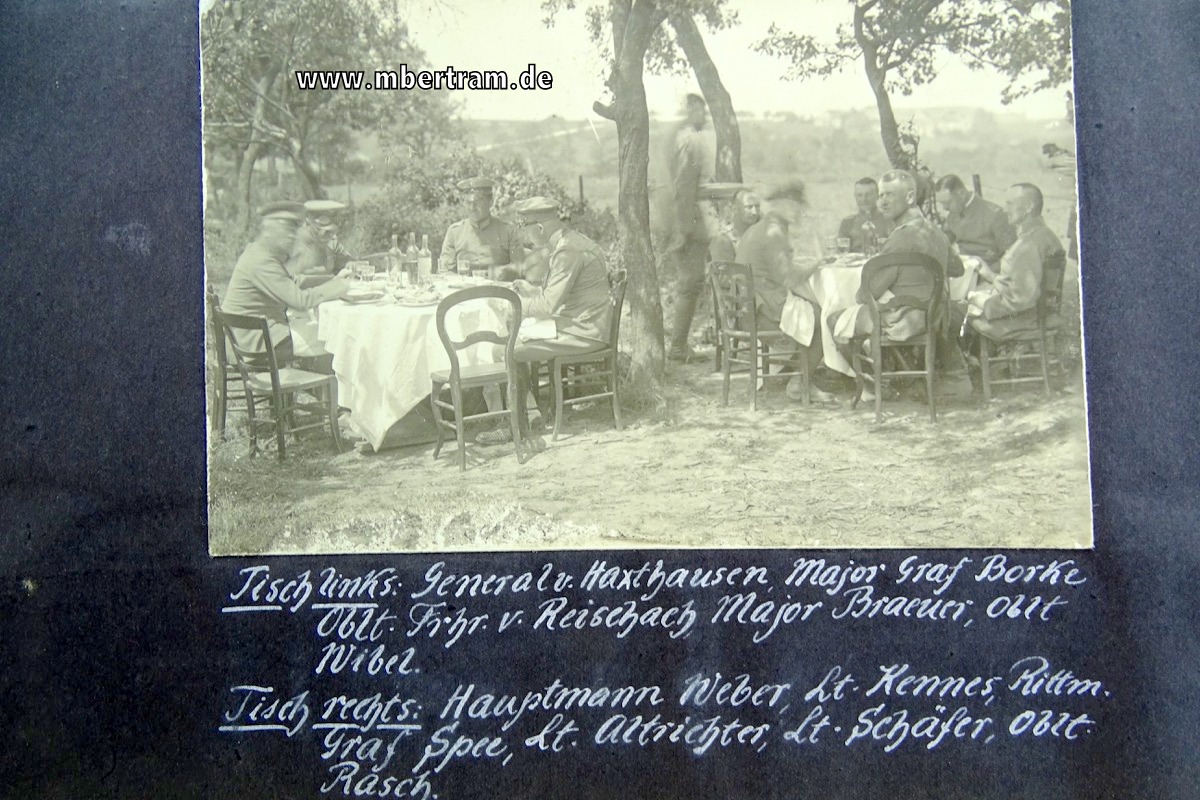 www.mbertram.de
Tisch links: General v. Haxthausen, Major Graf Borke
Oblt. Frhr. v. Reischach, Major Braeuer, Oblt
Wibel.
Tisch rechts: Hauptmann Weber, Lt. Kennes, Rittm.
Graf Spee, Lt. Altrichter, Lt. Schäfer, Oblt.
Rasch.